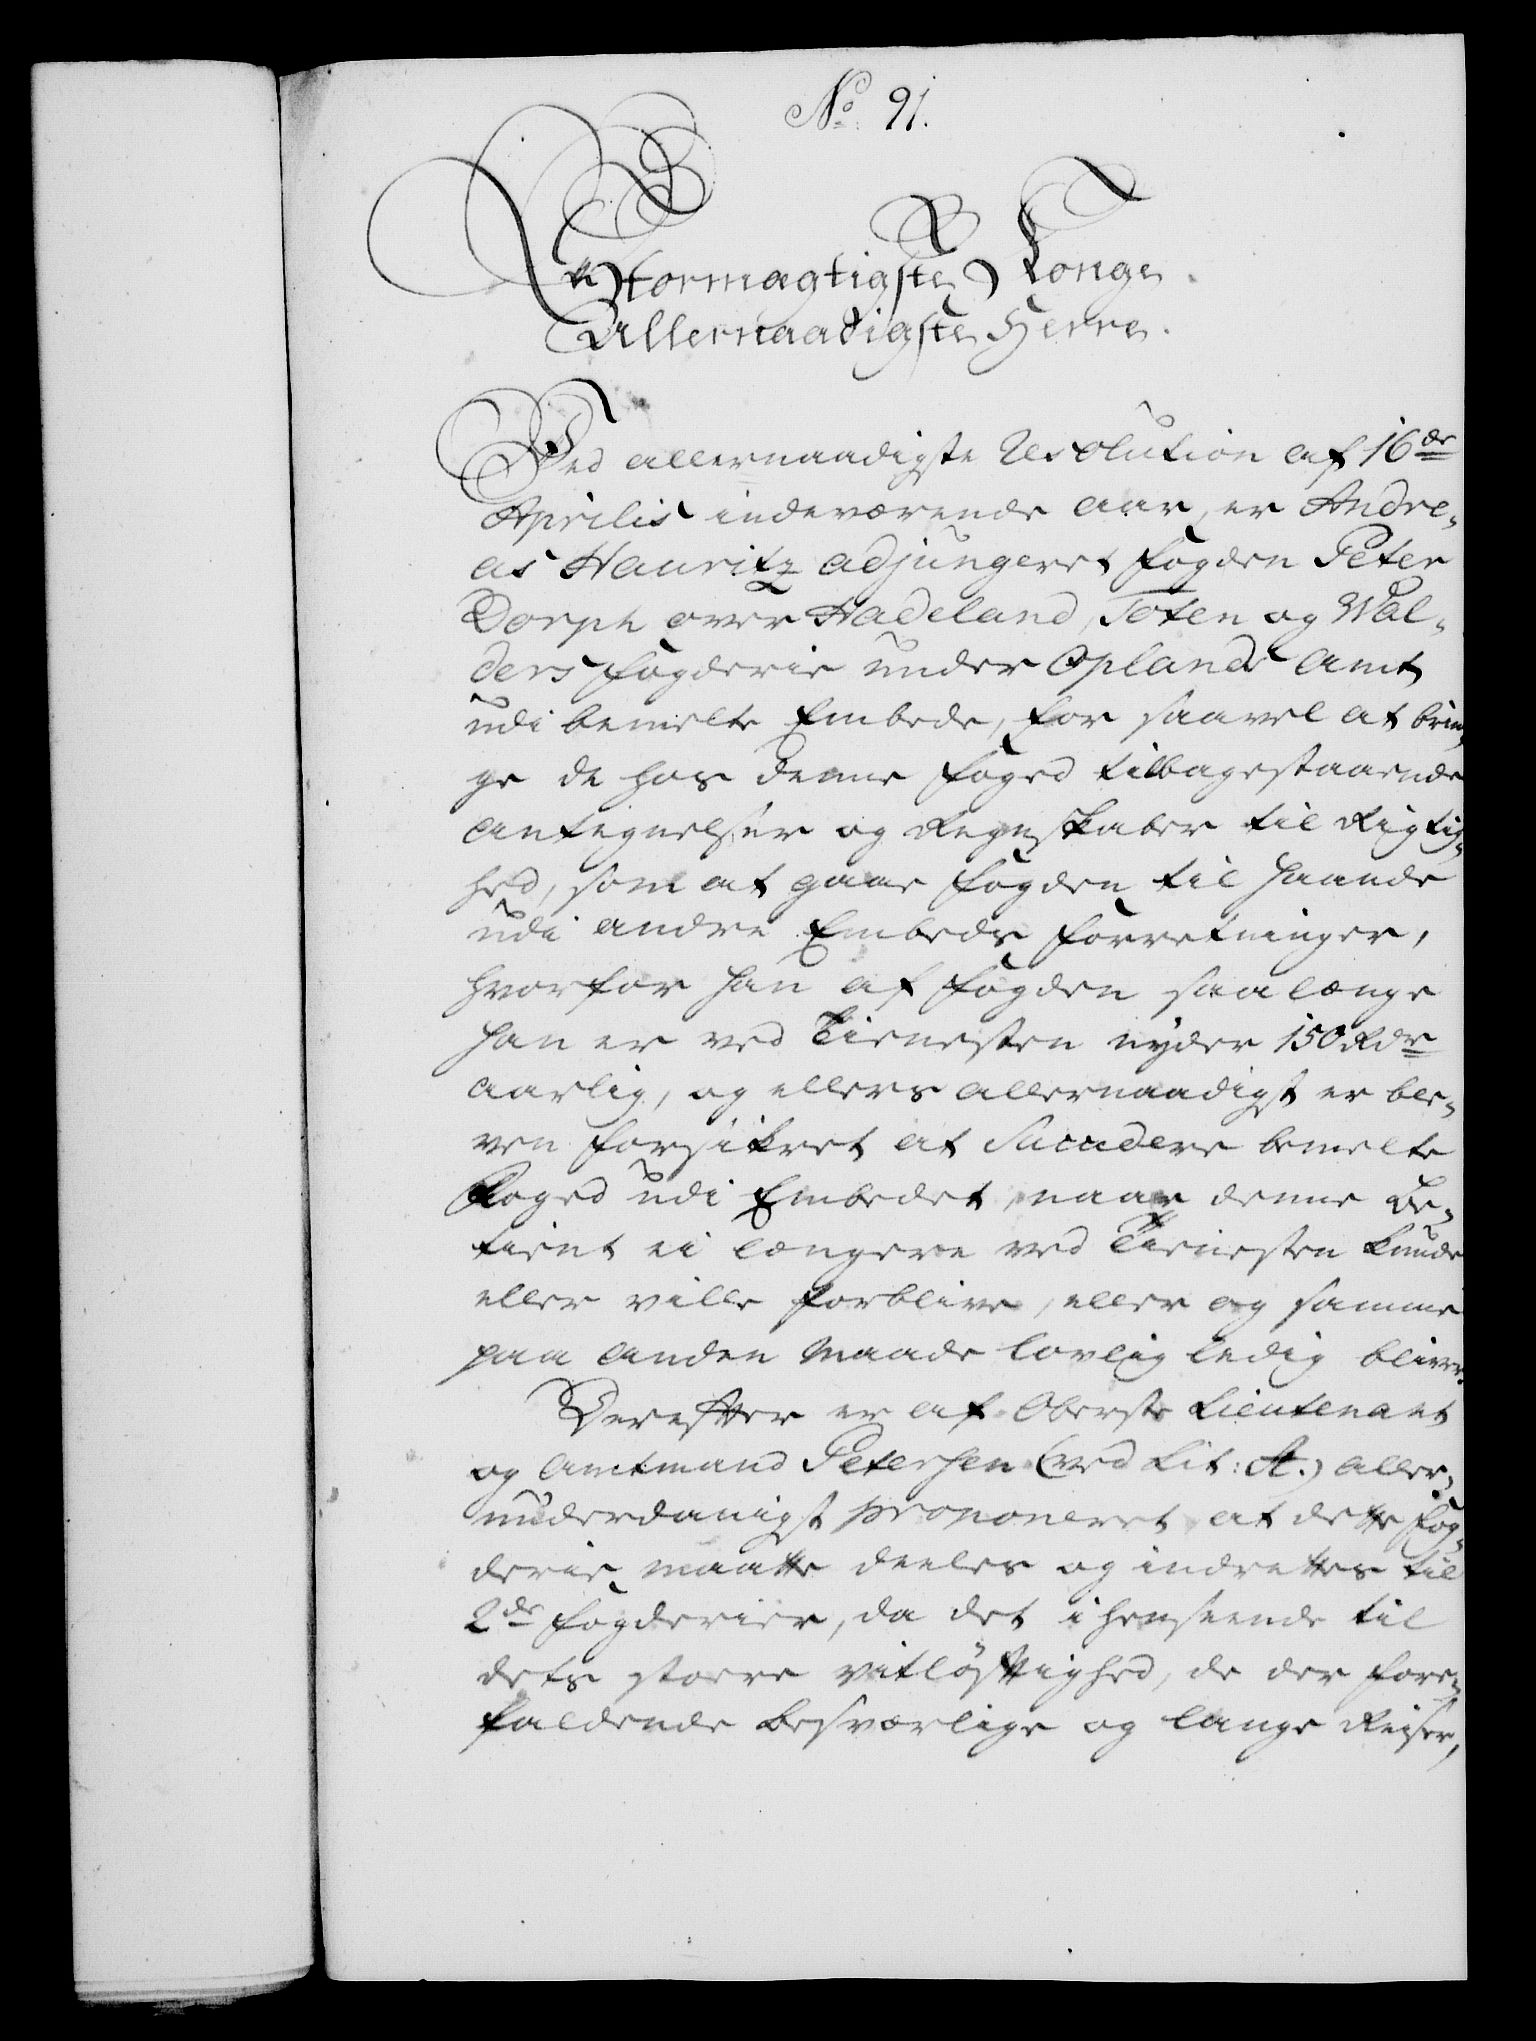 No 91.
Stormægtigste Konge
Allernaadigste Herre.
Ved allernaadigste Resolution af 16de
Aprilis indeværende aar, er Andre-
as Hauritz adjungeret Fogden Peter
Dorph over Hadeland, Toten og Wal-
ders Fogderie under Oplands Amt
udi bemelte Embede, for saavel at brin-
ge de hos denne Foged tilbagestaaende
Antegnelser og Regnskaber til Rigtig-
hed, som at gaae Fogden til Haande
udi andre Embeds Forretninger,
hvorfor han af Fogden saalænge
han er ved Tienesten nyder 150 Rdr
aarlig, og ellers allernaadigst er ble-
ven forsikret at Succedere bemelte
Foged udi Embedet, naar denne Be-
tient ei længere ved Tienesten kunde
eller ville forblive, eller og samme
paa anden Maade lovlig ledig bliver.
Derefter er af Oberste Lieutenant
og Amtmand Petersen (ved Lit: A.) aller-
underdanigst proponeret at dette Fog-
derie maatte deeles og indrettes til
2de Fogderier, da det i henseende til
dets store vitløftighed, de der fore-
faldende besværlige og lange Reiser,